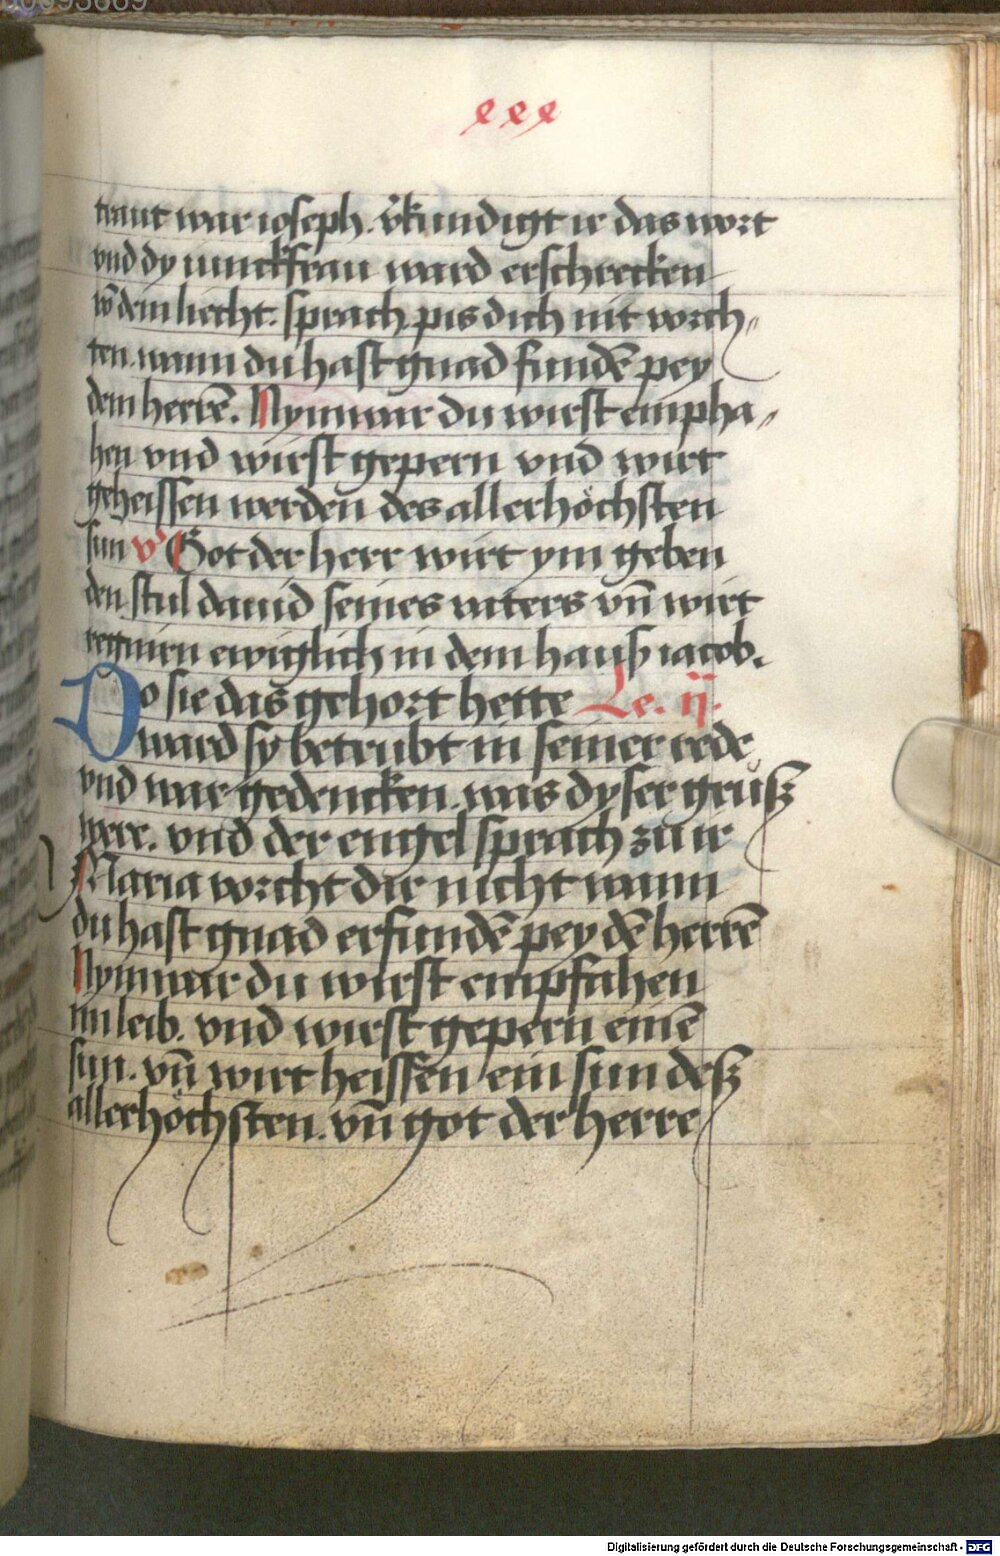 xxx
traut war ioseph. v̄kundigt ir das wort
vnd dy iunckfrau ward erschrecken
vō dem liecht. sprach. pis dich nit vorch⸗
ten. wann du hast gnad fundē pey
dem herrē. Nymwar du wirst empha⸗
hen vnd wirst gepern vnd wirt
geheissen werden des allerhöchsten
sun v̓ Got der herr wirt ym geben
den stul dauid seines vaters vn̄ wirt
regnirn ewiglich in dem hauß iacob.
Do sie das gehort hette Le. ij.
ward sy betrubt in seiner rede
vnd war gedencken. was dyser grůß
were. vnd der engel sprach zu ir
Maria vorcht dir nicht wann
du hast gnad erfundē pey dē herrē
Nymwar du wirst empfahen
im leib. vnd wirst gepern einē
sun. vn̄ wirt heissen ein sun deß
allerhöchsten. vn̄ got der herre
Digitalisierung gefördert durch die Deutsche Forschungsgemeinschaft - DFG